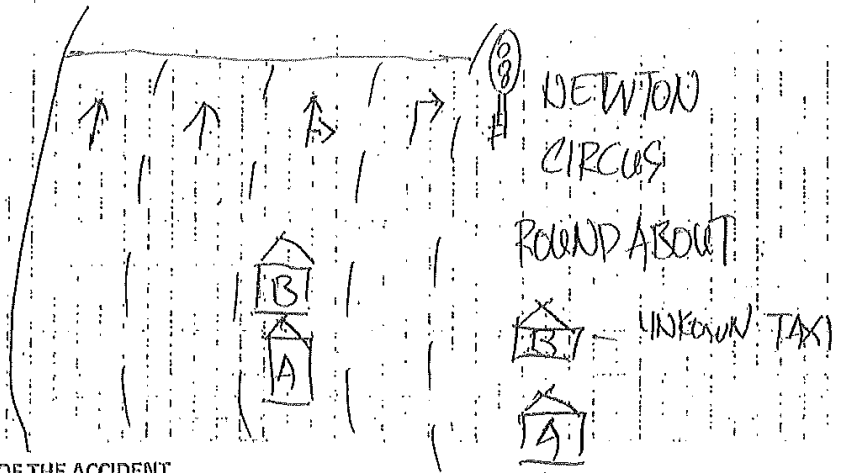 NEWTON
CIRCUS
ROUND ABOUT
B
A
B - UNKOWN TAXI
A
OF THE ACCIDENT